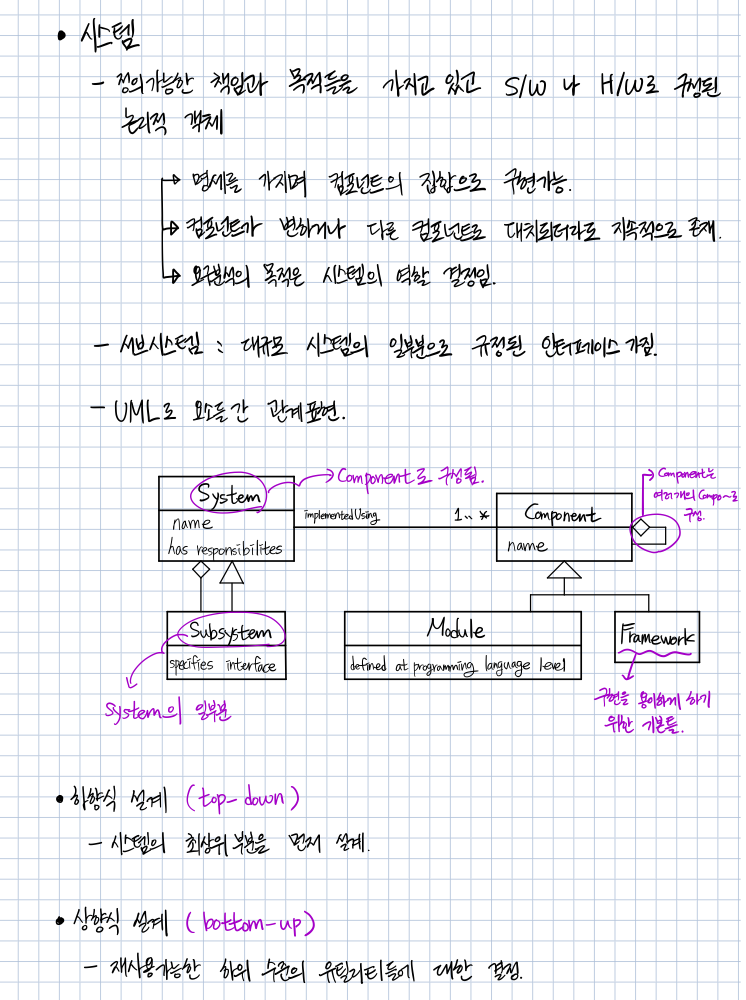 • 시스템
- 정의가능한 책임과 목적들을 가지고 있고 S/W 나 H/W로 구성된
논리적 객체
→ 명세를 가지며 컴포넌트의 집합으로 구현가능.
→ 컴포넌트가 변하거나 다른 컴포넌트로 대치되더라도 지속적으로 존재.
→ 요구분석의 목적은 시스템의 역할 결정임.
- 서브시스템 : 대규모 시스템의 일부분으로 규정된 인터페이스 가짐.
- UML로 요소들간 관계표현.
System
→ Component로 구성됨.
name
has responsibilites
implementedUsing
1..*
Component
name
→ Component는
여러개의 Compo~로
구성.
Subsystem
specifies interface
System의 일부분
Module
defined at programming language level
Framework
구현을 용이하게 하기
위한 기본틀.
• 하향식 설계 (top-down)
- 시스템의 최상위 부분을 먼저 설계.
• 상향식 설계 (bottom-up)
- 재사용가능한 하위 수준의 유틸리티들에 대한 결정.